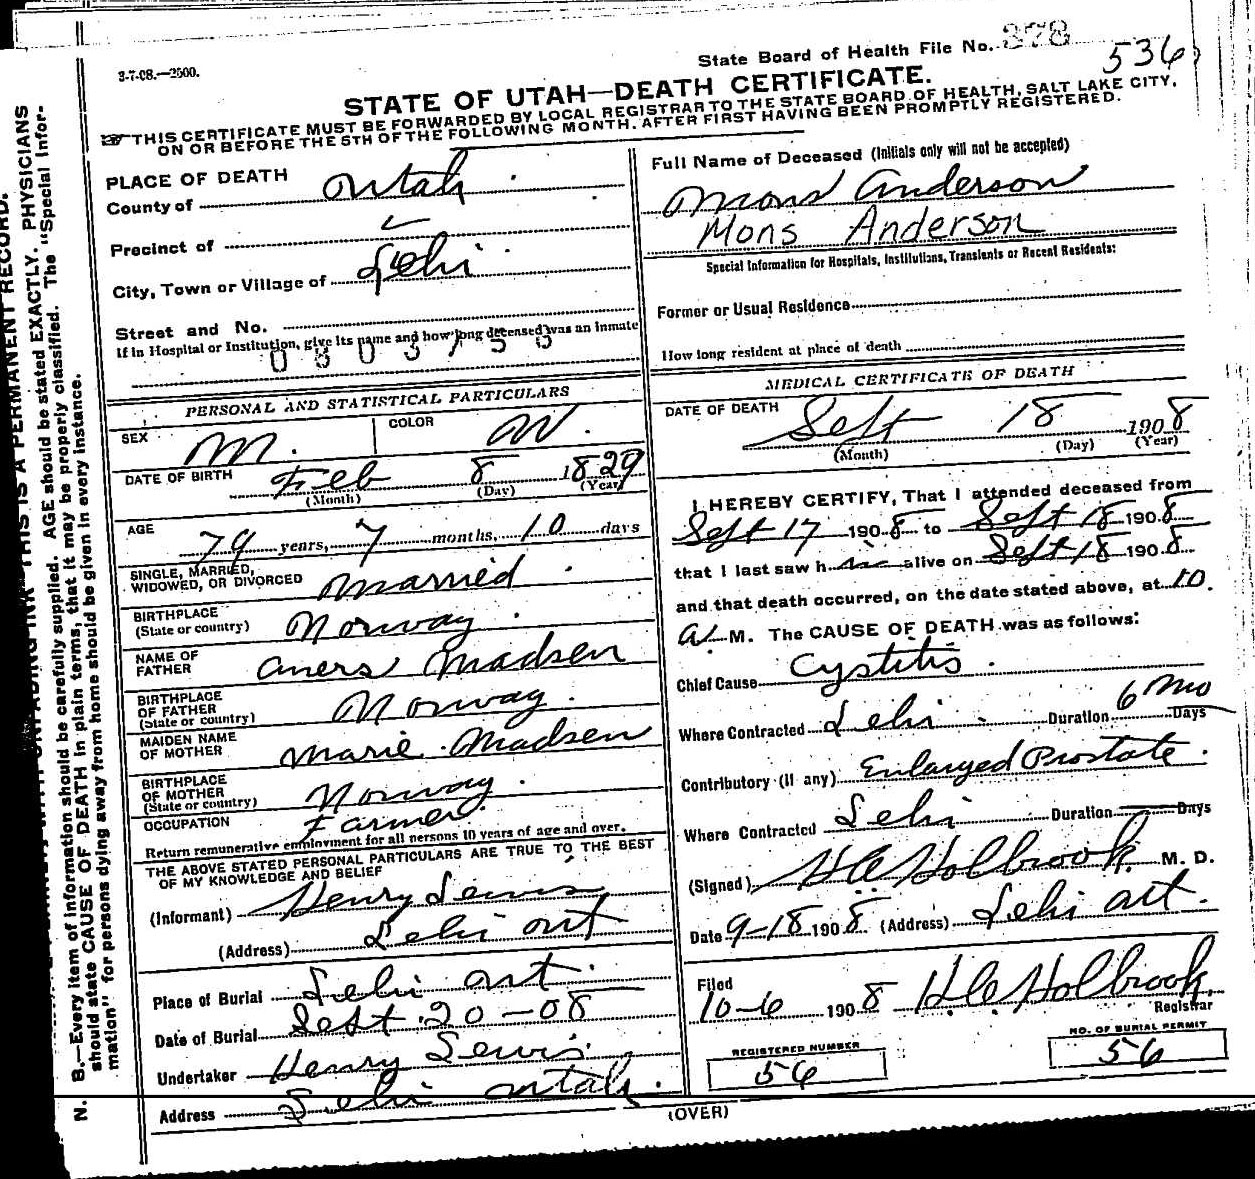 3-7-08.—2500.
State Board of Health File No. 378
536
STATE OF UTAH—DEATH CERTIFICATE.
THIS CERTIFICATE MUST BE FORWARDED BY LOCAL REGISTRAR TO THE STATE BOARD OF HEALTH, SALT LAKE CITY,
ON OR BEFORE THE 5TH OF THE FOLLOWING MONTH. AFTER FIRST HAVING BEEN PROMPTLY REGISTERED.
PLACE OF DEATH
County of Utah
Precinct of
City, Town or Village of Lehi
Street and No.
If in Hospital or Institution, give its name and how long deceased was an inmate
PERSONAL AND STATISTICAL PARTICULARS
SEX M.
COLOR W.
DATE OF BIRTH Feb 8 1829
(Month) (Day) (Year)
AGE 79 years, 7 months, 10 days
SINGLE, MARRIED,
WIDOWED, OR DIVORCED Married
BIRTHPLACE
(State or country) Norway
NAME OF
FATHER Aners Madsen
BIRTHPLACE
OF FATHER
(State or country) Norway
MAIDEN NAME
OF MOTHER Marie Madsen
BIRTHPLACE
OF MOTHER
(State or country) Norway
OCCUPATION Farmer
Return remunerative employment for all persons 10 years of age and over.
THE ABOVE STATED PERSONAL PARTICULARS ARE TRUE TO THE BEST
OF MY KNOWLEDGE AND BELIEF
(Informant) Henry Lewis
(Address) Lehi Ut
Place of Burial Lehi Ut.
Date of Burial Sept 20-08
Undertaker Henry Lewis
Address Lehi Utah.
Full Name of Deceased (Initials only will not be accepted)
Mons Anderson
Mons Anderson
Special Information for Hospitals, Institutions, Transients or Recent Residents:
Former or Usual Residence
How long resident at place of death
MEDICAL CERTIFICATE OF DEATH
DATE OF DEATH
Sept 18 1908
(Month) (Day) (Year)
I HEREBY CERTIFY, That I attended deceased from
Sept 17 1908 to Sept 18 1908
that I last saw him alive on Sept 18 1908
and that death occurred, on the date stated above, at 10
A. M. The CAUSE OF DEATH was as follows:
Chief Cause Cystitis.
Where Contracted Lehi Duration 6 Mo Days
Contributory (if any) Enlarged Prostate.
Where Contracted Lehi Duration Days
(Signed) H C Holbrook M. D.
Date 9-18 1908 (Address) Lehi Ut.
Filed
10-6 1908 H C Holbrook
Registrar
REGISTERED NUMBER
56
NO. OF BURIAL PERMIT
56
(OVER)
N. B.—Every item of information should be carefully supplied. AGE should be stated EXACTLY. PHYSICIANS
should state CAUSE OF DEATH in plain terms, that it may be properly classified. The "Special Infor-
mation" for persons dying away from home should be given in every instance.